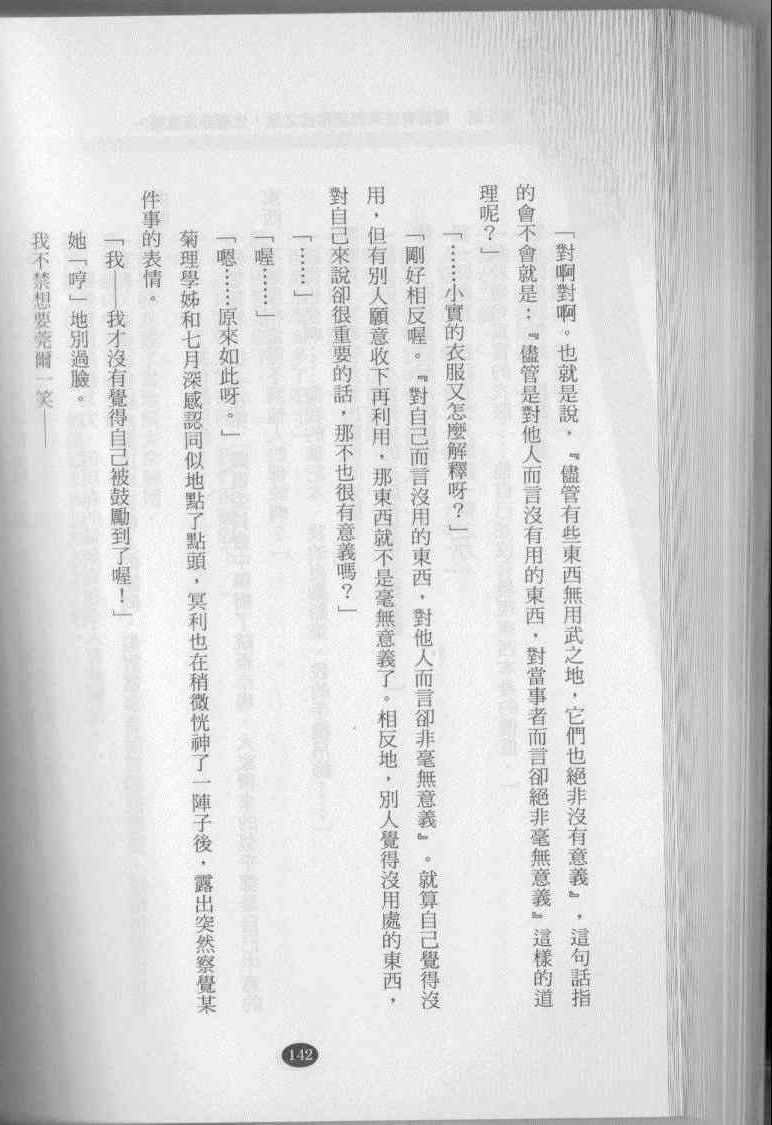 「對啊對啊。也就是說，『儘管有些東西無用武之地，它們也絕非沒有意義』，這句話指
的會不會就是：『儘管是對他人而言沒有用的東西，對當事者而言卻絕非毫無意義』這樣的道
理呢？」
「……小實的衣服又怎麼解釋呀？」
「剛好相反喔。『對自己而言沒用的東西，對他人而言卻非毫無意義』。就算自己覺得沒
用，但有別人願意收下再利用，那東西就不是毫無意義了。相反地，別人覺得沒用處的東西，
對自己來說卻很重要的話，那不也很有意義嗎？」
「……」
「喔……」
「嗯……原來如此呀。」
菊理學姊和七月深感認同似地點了點頭，冥利也在稍微恍神了一陣子後，露出突然察覺某
件事的表情。
「我——我才沒有覺得自己被鼓勵到了喔！」
她「哼」地別過臉。
我不禁想要莞爾一笑——
142